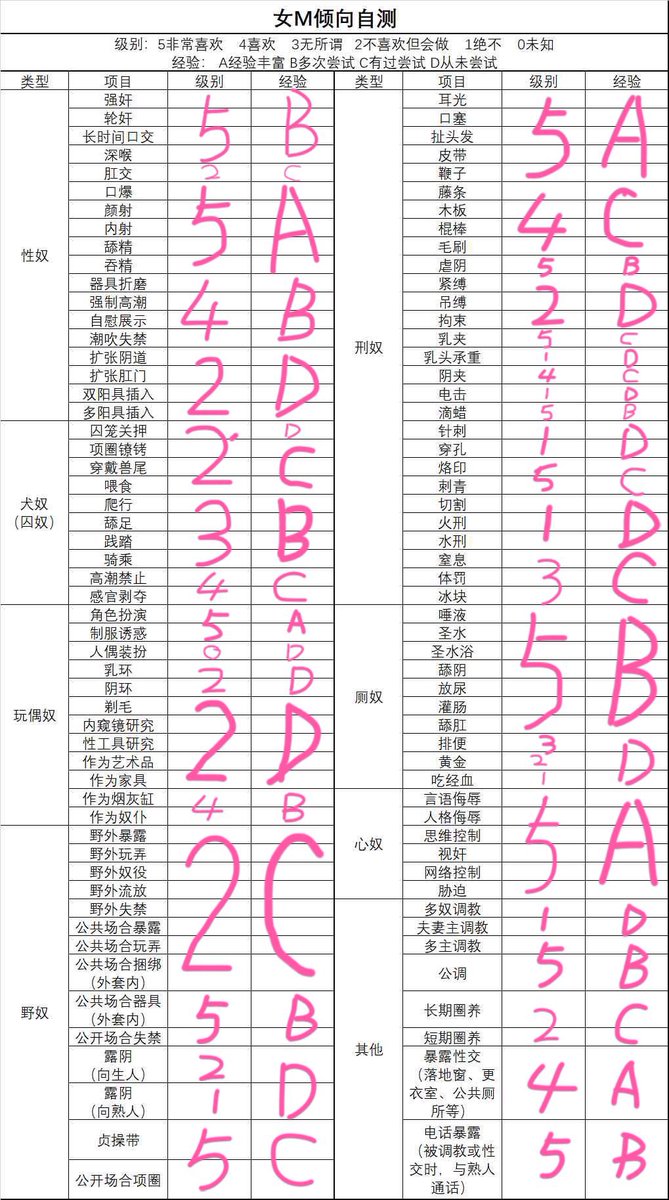 女M倾向自测
级别：5非常喜欢 4喜欢 3无所谓 2不喜欢但会做 1绝不 0未知
经验：A经验丰富 B多次尝试 C有过尝试 D从未尝试
类型 项目 级别 经验 类型 项目 级别 经验
性奴
强奸
轮奸
长时间口交
深喉
5 B
肛交 2 C
口爆
颜射
内射
舔精
吞精
5 A
器具折磨
强制高潮
自慰展示
潮吹失禁
4 B
扩张阴道
扩张肛门
双阳具插入
多阳具插入
2 D
犬奴
（囚奴）
囚笼关押
项圈镣铐
穿戴兽尾
喂食
2 D
C
爬行
舔足
践踏
骑乘
3 B
高潮禁止
感官剥夺
4 C
玩偶奴
角色扮演
制服诱惑
5 A
人偶装扮 0 D
乳环
阴环
2 D
剃毛
内窥镜研究
性工具研究
作为艺术品
作为家具
2 D
作为烟灰缸
作为奴仆
4 B
野奴
野外暴露
野外玩弄
野外奴役
野外流放
野外失禁
公共场合暴露
公共场合玩弄
公共场合捆绑
（外套内）
2 C
公共场合器具
（外套内）
公开场合失禁
5 B
露阴
（向生人）
2
露阴
（向熟人）
1 D
贞操带
公开场合项圈
5 C
刑奴
耳光
口塞
扯头发
皮带
鞭子
5 A
藤条
木板
棍棒
毛刷
4 C
虐阴 5 B
紧缚
吊缚
拘束
2 D
乳夹 5 C
乳头承重 1 D
阴夹 4 C
电击 1 D
滴蜡 5 B
针刺
穿孔
1 D
烙印
刺青
5 C
切割
火刑
水刑
1 D
窒息
体罚
冰块
3 C
厕奴
唾液
圣水
圣水浴
舔阴
放尿
灌肠
舔肛
5 B
排便 3
黄金 2
吃经血 1
D
心奴
言语侮辱
人格侮辱
思维控制
视奸
网络控制
胁迫
5 A
其他
多奴调教
夫妻主调教
1 D
多主调教
公调
5 B
长期圈养
短期圈养
2 C
暴露性交
（落地窗、更
衣室、公共厕
所等）
4 A
电话暴露
（被调教或性
交时，与熟人
通话）
5 B